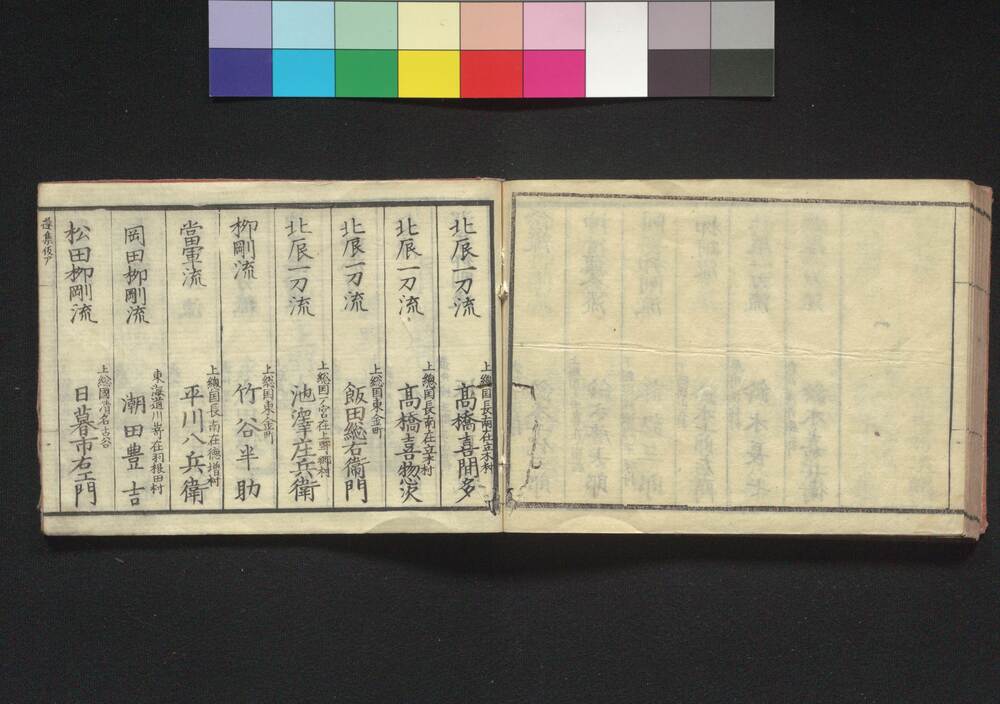 北辰一刀流
上總国長南在立木村
髙橋喜間多
北辰一刀流
上總国長南在立木村
髙橋喜惣次
北辰一刀流
上総国東金町
飯田総右衛門
北辰一刀流
上総国一ノ宮在上野郷村
池澤庄兵衛
柳剛流
上総国東金町
竹谷半助
當軍流
上總国長南在德増村
平川八兵衛
岡田柳剛流
東海道川嵜在羽根田村
潮田豊吉
松田柳剛流
上総國
日暮市右エ門